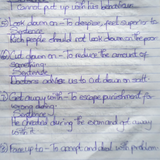 I cannot put up with his
Look down on - To despise, feel superior to
Sentence
Rich people should not look down on the poor
Cut down on - To reduce the amount of
something
Sentence
Doctors advise us to cut down on salt
Get away with - To escape punishment for
wrong doing
Sentence
He cheated during the exam and got away
with it
Face up to - To accept and deal with problem